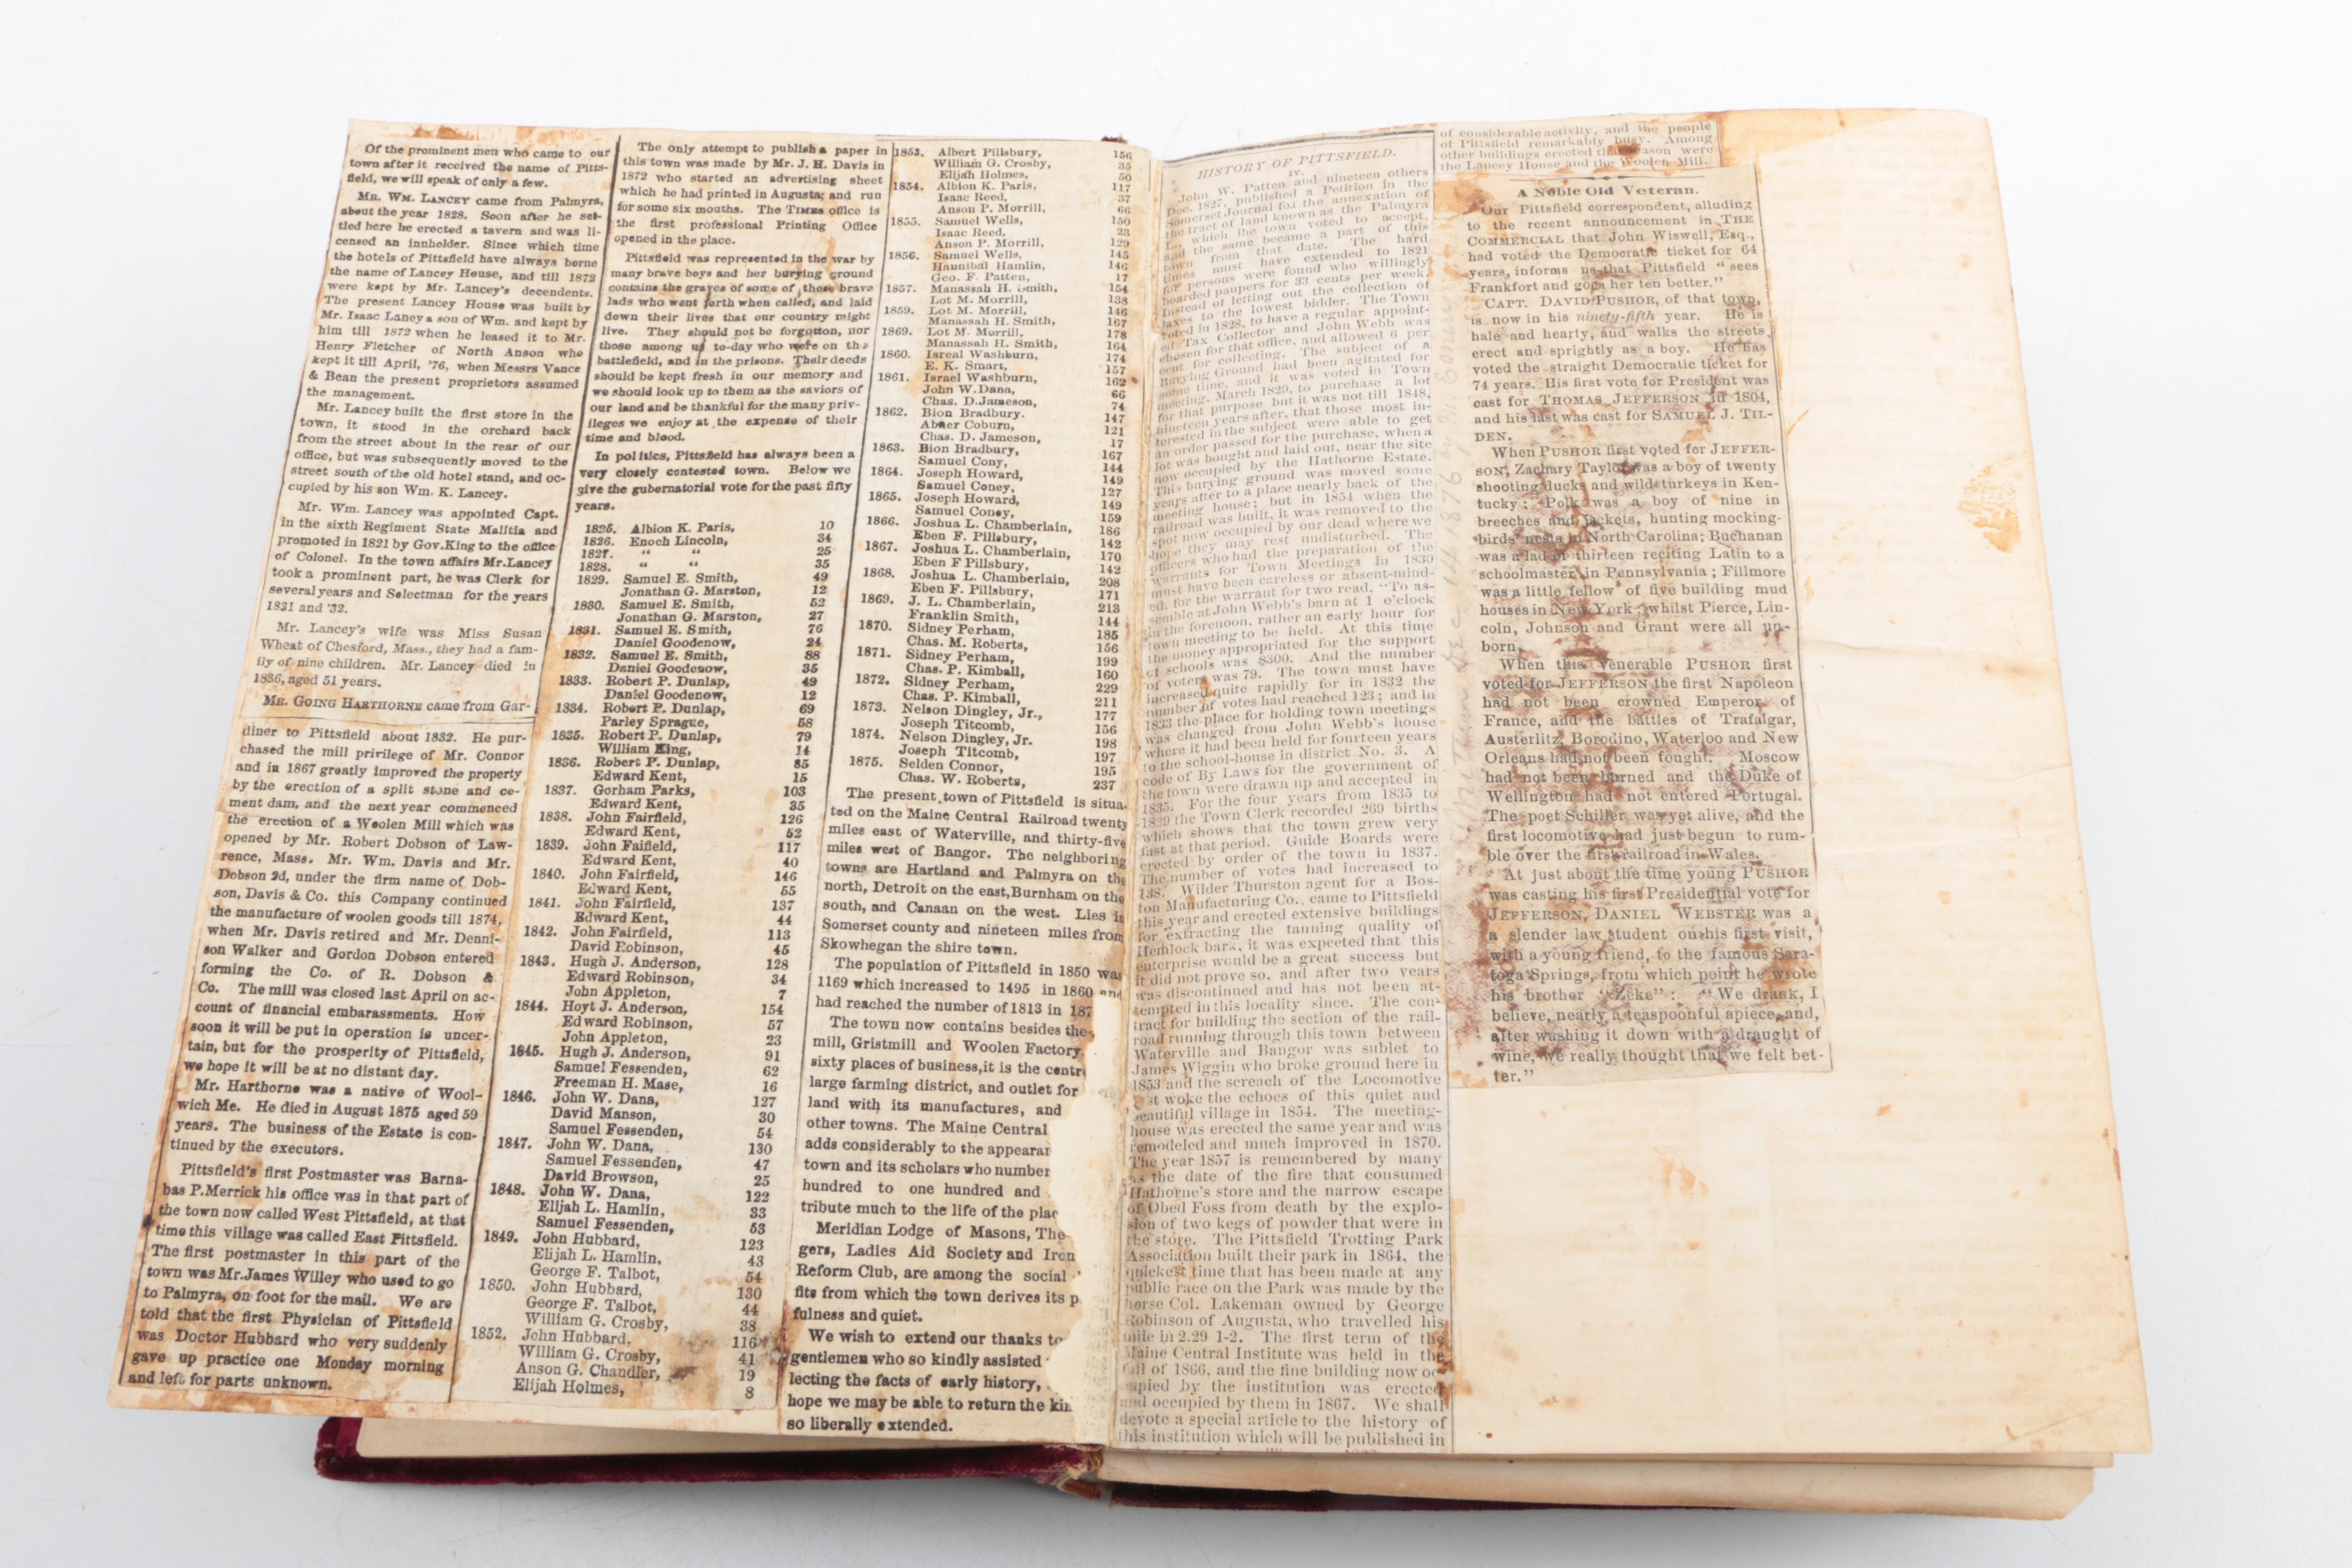 Of the prominent men who came to our
town after it received the name of Pitts-
field, we will speak of only a few.
MR. WM. LANCEY came from Palmyra,
about the year 1828. Soon after he set-
tled here he erected a tavern and was li-
censed an innholder. Since which time
the hotels of Pittsfield have always borne
the name of Lancey House, and till 1872
were kept by Mr. Lancey's decendents.
The present Lancey House was built by
Mr. Isaac Lancy a son of Wm. and kept by
him till 1872 when he leased it to Mr.
Henry Fletcher of North Anson who
kept it till April, '76, when Messrs Vance
& Bean the present proprietors assumed
the management.
Mr. Lancey built the first store in the
town, it stood in the orchard back
from the street about in the rear of our
office, but was subsequently moved to the
street south of the old hotel stand, and oc-
cupied by his son Wm. K. Lancey.
Mr. Wm. Lancey was appointed Capt.
in the sixth Regiment State Malitia and
promoted in 1821 by Gov.King to the office
of Colonel. In the town affairs Mr.Lancey
took a prominent part, he was Clerk for
several years and Selectman for the years
1831 and '32.
Mr. Lancey's wife was Miss Susan
Wheat of Chesford, Mass., they had a fam-
ily of nine children. Mr. Lancey died in
1836, aged 51 years.
MR. GOING HARTHORNE came from Gar-
diner to Pittsfield about 1832. He pur-
chased the mill privilege of Mr. Connor
and in 1867 greatly improved the property
by the erection of a split stone and ce-
ment dam, and the next year commenced
the erection of a Woolen Mill which was
opened by Mr. Robert Dobson of Law-
rence, Mass. Mr. Wm. Davis and Mr.
Dobson 2d, under the firm name of Dob-
son, Davis & Co. this Company continued
the manufacture of woolen goods till 1874,
when Mr. Davis retired and Mr. Denni-
son Walker and Gordon Dobson entered
forming the Co. of R. Dobson &
Co. The mill was closed last April on ac-
count of financial embarassments. How
soon it will be put in operation is uncer-
tain, but for the prosperity of Pittsfield,
we hope it will be at no distant day.
Mr. Harthorne was a native of Wool-
wich Me. He died in August 1875 aged 59
years. The business of the Estate is con-
tinued by the executors.
Pittsfield's first Postmaster was Barna-
bas P.Merrick his office was in that part of
the town now called West Pittsfield, at that
time this village was called East Pittsfield.
The first postmaster in this part of the
town was Mr.James Willey who used to go
to Palmyra, on foot for the mail. We are
told that the first Physician of Pittsfield
was Doctor Hubbard who very suddenly
gave up practice one Monday morning
and left for parts unknown.
The only attempt to publish a paper in
this town was made by Mr. J. H. Davis in
1872 who started an advertising sheet
which he had printed in Augusta; and run
for some six mouths. The TIMES office is
the first professional Printing Office
opened in the place.
Pittsfield was represented in the war by
many brave boys and her burying ground
contains the graves of some of those brave
lads who went forth when called, and laid
down their lives that our country might
live. They should not be forgotton, nor
those among us to-day who were on the
battlefield, and in the prisons. Their deeds
should be kept fresh in our memory and
we should look up to them as the saviors of
our land and be thankful for the many priv-
ileges we enjoy at the expense of their
time and blood.
In politics, Pittsfield has always been a
very closely contested town. Below we
give the gubernatorial vote for the past fifty
years.
1825. Albion K. Paris, 10
1826. Enoch Lincoln, 34
1827. " " 25
1828. " " 35
1829. Samuel E. Smith, 49
Jonathan G. Marston, 12
1830. Samuel E. Smith, 52
Jonathan G. Marston, 27
1831. Samuel E. Smith, 76
Daniel Goodenow, 24
1832. Samuel E. Smith, 88
Daniel Goodenow, 35
1833. Robert P. Dunlap, 49
Daniel Goodenow, 12
1834. Robert P. Dunlap, 69
Parley Sprague, 58
1835. Robert P. Dunlap, 79
William King, 14
1836. Robert P. Dunlap, 85
Edward Kent, 15
1837. Gorham Parks, 103
Edward Kent, 35
1838. John Fairfield, 126
Edward Kent, 52
1839. John Faifield, 117
Edward Kent, 40
1840. John Fairfield, 146
Edward Kent, 55
1841. John Fairfield, 137
Edward Kent, 44
1842. John Fairfield, 113
David Robinson, 45
1843. Hugh J. Anderson, 128
Edward Robinson, 34
John Appleton, 7
1844. Hoyt J. Anderson, 154
Edward Robinson, 57
John Appleton, 23
1845. Hugh J. Anderson, 91
Samuel Fessenden, 62
Freeman H. Mase, 16
1846. John W. Dana, 127
David Manson, 30
Samuel Fessenden, 54
1847. John W. Dana, 130
Samuel Fessenden, 47
David Browson, 25
1848. John W. Dana, 122
Elijah L. Hamlin, 33
Samuel Fessenden, 53
1849. John Hubbard, 123
Elijah L. Hamlin, 43
George F. Talbot, 54
1850. John Hubbard, 130
George F. Talbot, 44
William G. Crosby, 38
1852. John Hubbard, 116
William G. Crosby, 41
Anson G. Chandler, 19
Elijah Holmes, 8
1853. Albert Pillsbury, 156
William G. Crosby, 35
Elijah Holmes, 50
1854. Albion K. Paris, 117
Isaac Reed, 37
Anson P. Morrill, 66
1855. Samuel Wells, 150
Isaac Reed, 23
Anson P. Morrill, 129
1856. Samuel Wells, 145
Hannibal Hamlin, 146
Geo. F. Patten, 17
1857. Manassah H. Smith, 154
Lot M. Morrill, 138
1859. Lot M. Morrill, 146
Manassah H. Smith, 167
1869. Lot M. Morrill, 178
Manassah H. Smith, 164
1860. Isreal Washburn, 174
E. K. Smart, 157
1861. Israel Washburn, 162
John W.Dana, 66
Chas. D.Jameson, 74
1862. Bion Bradbury. 147
Abner Coburn, 121
Chas. D. Jameson, 17
1863. Bion Bradbury, 167
Samuel Cony, 144
1864. Joseph Howard, 149
Samuel Coney, 127
1865. Joseph Howard, 149
Samuel Coney, 159
1866. Joshua L. Chamberlain, 186
Eben F. Pillsbury, 142
1867. Joshua L. Chamberlain, 170
Eben F Pillsbury, 142
1868. Joshua L. Chamberlain, 208
Eben F. Pillsbury, 171
1869. J. L. Chamberlain, 213
Franklin Smith, 144
1870. Sidney Perham, 185
Chas. M. Roberts, 156
1871. Sidney Perham, 199
Chas. P. Kimball, 160
1872. Sidney Perham, 229
Chas. P. Kimball, 211
1873. Nelson Dingley, Jr., 177
Joseph Titcomb, 156
1874. Nelson Dingley, Jr. 198
Joseph Titcomb, 197
1875. Selden Connor, 195
Chas. W. Roberts, 237
The present town of Pittsfield is situa-
ted on the Maine Central Railroad twenty
miles east of Waterville, and thirty-five
miles west of Bangor. The neighboring
towns are Hartland and Palmyra on the
north, Detroit on the east,Burnham on the
south, and Canaan on the west. Lies in
Somerset county and nineteen miles from
Skowhegan the shire town.
The population of Pittsfield in 1850 was
1169 which increased to 1495 in 1860 and
had reached the number of 1813 in 187
The town now contains besides the
mill, Gristmill and Woolen Factory
sixty places of business,it is the centr
large farming district, and outlet for
land with its manufactures, and
other towns. The Maine Central
adds considerably to the appearar
town and its scholars who number
hundred to one hundred and
tribute much to the life of the plac
Meridian Lodge of Masons, The
gers, Ladies Aid Society and Iron
Reform Club, are among the social
fits from which the town derives its p
fulness and quiet.
We wish to extend our thanks to
gentlemen who so kindly assisted
lecting the facts of early history,
hope we may be able to return the kin
so liberally extended.
HISTORY OF PITTSFIELD.
IV.
John W. Patten and nineteen others
Dec. 1827, published a Petition in the
Somerset Journal for the annexation of
the tract of land known as the Palmyra
L., which the town voted to accept,
and the same became a part of this
town from that date. The hard
times must have extended to 1821
for persons were found who willingly
boarded paupers for 33 cents per week.
Instead of letting out the collection of
taxes to the lowest bidder. The Town
voted in 1828, to have a regular appoint-
ed Tax Collector and John Webb was
chosen for that office, and allowed 6 per
cent for collecting. The subject of a
Burying Ground had been agitated for
some time, and it was voted in Town
meeting, March 1829, to purchase a lot
for that purpose but it was not till 1848,
nineteen years after, that those most in-
terested in the subject were able to get
an order passed for the purchase, when a
lot was bought and laid out, near the site
now occupied by the Hathorne Estate.
This burying ground was moved some
years after to a place nearly back of the
meeting house; but in 1854 when the
railroad was built, it was removed to the
spot now occupied by our dead where we
hope they may rest undisturbed. The
officers who had the preparation of the
warrants for Town Meetings in 1830
must have been careless or absent-mind-
ed, for the warrant for two read, "To as-
semble at John Webb's barn at 1 o'clock
in the forenoon, rather an early hour for
town meeting to be held. At this time
the money appropriated for the support
of schools was $300. And the number
of voters was 79. The town must have
increased quite rapidly for in 1832 the
number of votes had reached 123; and in
1833 the place for holding town meetings
was changed from John Webb's house
where it had been held for fourteen years
to the school-house in district No. 3. A
code of By Laws for the government of
the town were drawn up and accepted in
1835. For the four years from 1835 to
1839 the Town Clerk recorded 269 births
which shows that the town grew very
fast at that period. Guide Boards were
erected by order of the town in 1837.
The number of votes had increased to
138. Wilder Thurston agent for a Bos-
ton Manufacturing Co., came to Pittsfield
this year and erected extensive buildings
for extracting the tanning quality of
Hemlock bark, it was expected that this
enterprise would be a great success but
it did not prove so, and after two years
was discontinued and has not been at-
tempted in this locality since. The con-
tract for building the section of the rail-
road running through this town between
Waterville and Bangor was sublet to
James Wiggin who broke ground here in
1853 and the screach of the Locomotive
st woke the echoes of this quiet and
beautiful village in 1854. The meeting-
house was erected the same year and was
remodeled and much improved in 1870.
The year 1857 is remembered by many
as the date of the fire that consumed
Hathorne's store and the narrow escape
of Obed Foss from death by the explo-
sion of two kegs of powder that were in
the store. The Pittsfield Trotting Park
Association built their park in 1864, the
quickest time that has been made at any
public race on the Park was made by the
horse Col. Lakeman owned by George
Robinson of Augusta, who travelled his
mile in 2.29 1-2. The first term of the
Maine Central Institute was held in the
fall of 1866, and the fine building now oc-
cupied by the institution was erected
and occupied by them in 1867. We shall
devote a special article to the history of
this institution which will be published in
of considerable activity, and the people
of Pittsfield remarkably busy. Among
other buildings erected this season were
the Lancey House and the Woolen Mill.
A Noble Old Veteran.
Our Pittsfield correspondent, alluding
to the recent announcement in THE
COMMERCIAL that John Wiswell, Esq.,
had voted the Democratic ticket for 64
years, informs us that Pittsfield "sees
Frankfort and goes her ten better."
CAPT. DAVID PUSHOR, of that town,
is now in his ninety-fifth year. He is
hale and hearty, and walks the streets
erect and sprightly as a boy. He has
voted the straight Democratic ticket for
74 years. His first vote for President was
cast for THOMAS JEFFERSON in 1804,
and his last was cast for SAMUEL J. TIL-
DEN.
When PUSHOR first voted for JEFFER-
SON, Zachary Taylor was a boy of twenty
shooting ducks and wild turkeys in Ken-
tucky; Polk was a boy of nine in
breeches and jackets, hunting mocking-
birds' nests in North Carolina; Buchanan
was a lad of thirteen reciting Latin to a
schoolmaster in Pennsylvania; Fillmore
was a little fellow of five building mud
houses in New York; whilst Pierce, Lin-
coln, Johnson and Grant were all un-
born.
When this venerable PUSHOR first
voted for JEFFERSON the first Napoleon
had not been crowned Emperor of
France, and the battles of Trafalgar,
Austerlitz, Borodino, Waterloo and New
Orleans had not been fought. Moscow
had not been burned and the Duke of
Wellington had not entered Portugal.
The poet Schiller was yet alive, and the
first locomotive had just begun to rum-
ble over the first railroad in Wales.
At just about the time young PUSHOR
was casting his first Presidential vote for
JEFFERSON, DANIEL WEBSTER was a
a slender law student on his first visit,
with a young friend, to the famous Sara-
toga Springs, from which point he wrote
his brother "Zeke": "We drank, I
believe, nearly a teaspoonful apiece, and,
after washing it down with a draught of
wine, we really thought that we felt bet-
ter."